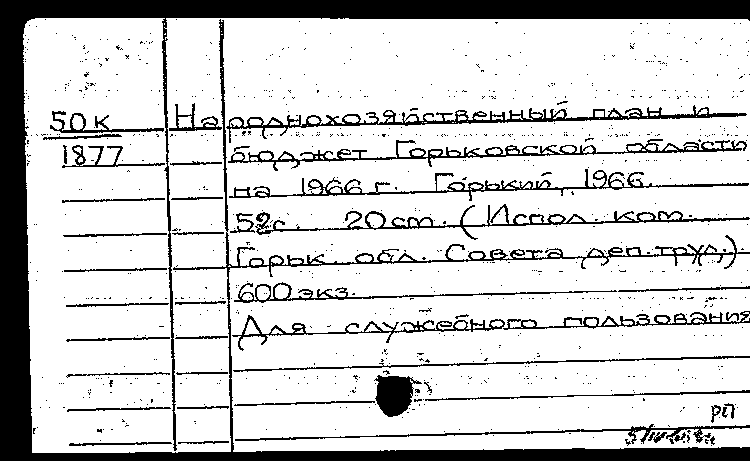 50к Народнохозяйственный план и
1877 бюджет Горьковской области
на 1966 г. Горький, 1966.
52с. 20 ст. (Испол. ком.
Горьк. обл. Совета деп. труд.)
600 экз.
Для служебного пользования
РП